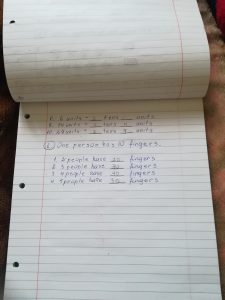 6 units = tens units
units = tens units
units = tens 9 units
2. One person has 10 fingers.
1 2 people have 20 fingers
2 3 people have 30 fingers
3 4 people have 40 fingers
4 5 people have 50 fingers